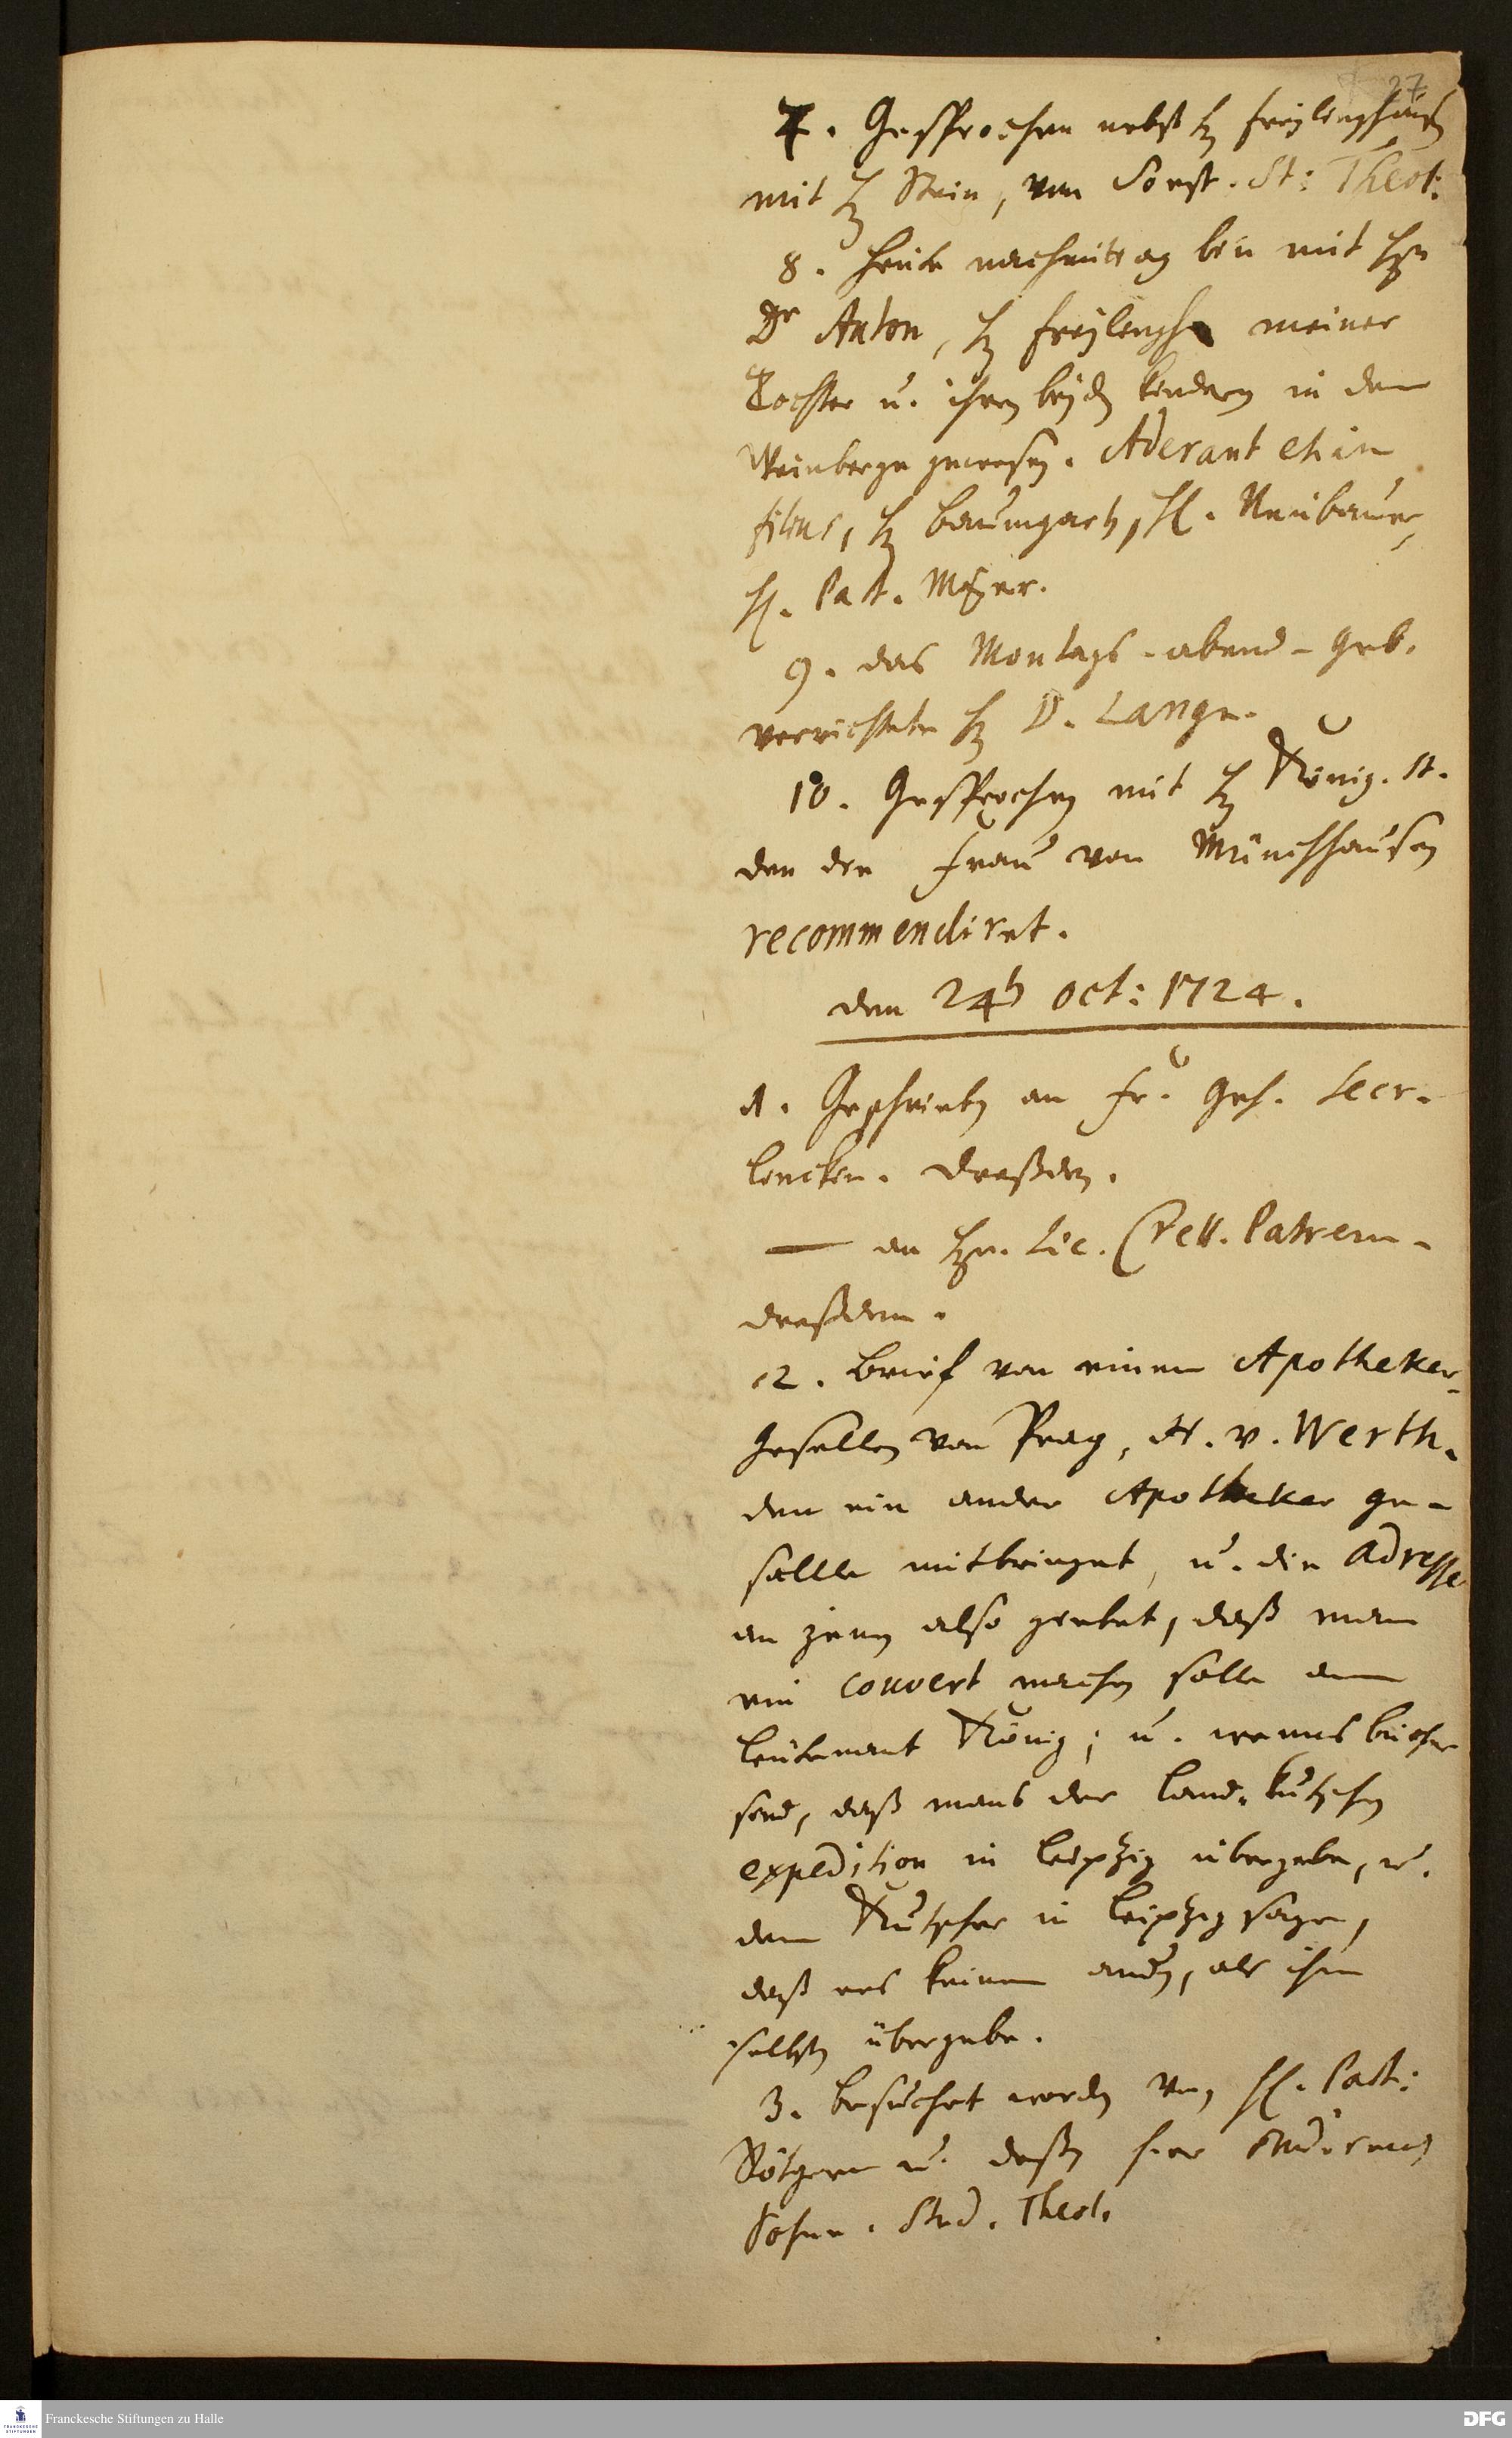 27
7. Gesprochen nebst H. Freylinghausen
mit H. Stein, von Soest. St: Theol:
8. Heute nachmittag bin mit Hrn
Dr Anton, H. Freylingh. meiner
Tochter u. ihren beyden Kindern in dem
Weinberge gewesen. Aderant etiam
filius, H. Baumgart, H. Neubauer,
H. Past. Mejer.
9. das Montags-abend-Geb.
verrichtete H. D. Lange.
10. Gesprochen mit H. König. St.
den die Frau von Münchhausen
recommendiret.
den 24h Oct: 1724.
1. Geschrieben an Fr. Geh. Secr.
Lincken. Dreßden.
— an Hrn. Lic. Crell. Patrem.
Dreßden.
2. Brief von einem Apotheker-
Gesellen von Prag, v. Werth.
den ein ander Apotheker ge-
selle mitbringet, u. die Adresse
an jenen also giebet, daß man
ein Couvert machen solle an
Leutenant König; u. wenns bücher
sind, daß mans der Land-Kutschen
expedition in Leipzig übergebe, u.
dem Kutscher in Leipzig sage,
daß ers keinem andern, als ihm
selbsten übergebe.
3. Besuchet worden von H. Past:
Rötgern u. deßen hier studirenden
Sohne. Stud. Theol.
Franckesche Stiftungen zu Halle
DFG